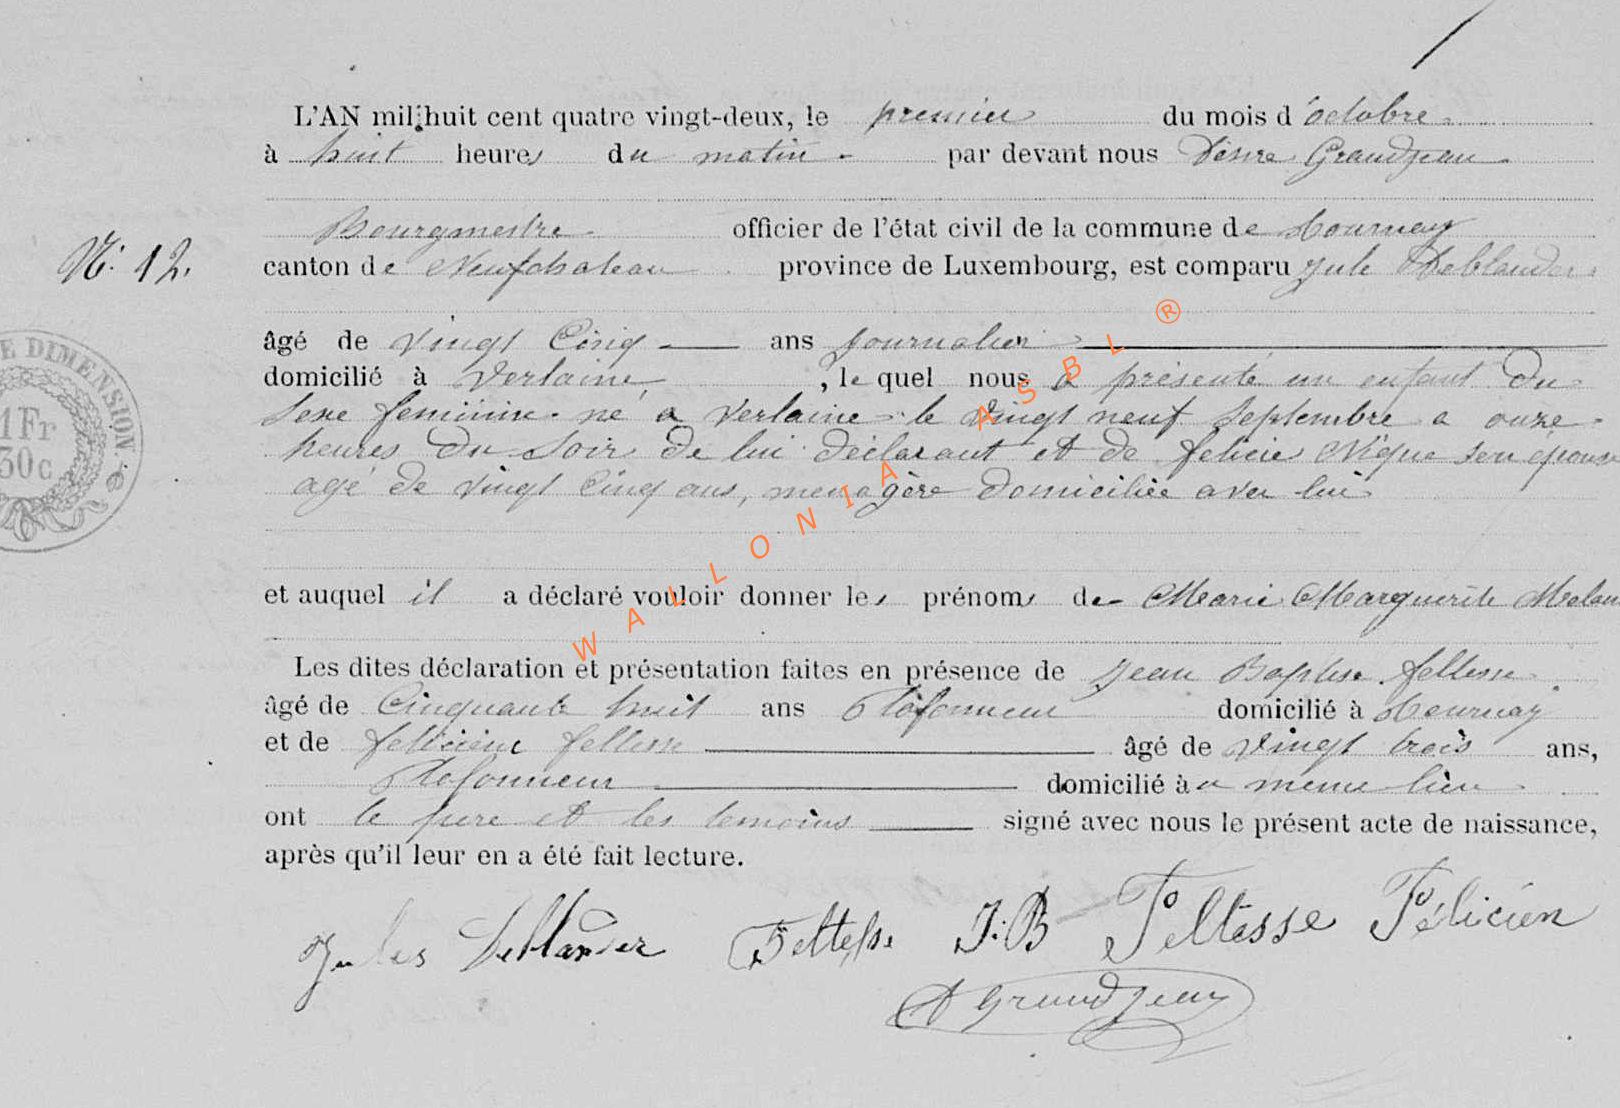 L'AN mil huit cent quatre vingt-deux, le premier du mois d'octobre
à huit heures du matin par devant nous Désiré Grandjean
Bourgmestre officier de l'état civil de la commune de Tournay
N° 12.
canton de Neufchateau province de Luxembourg, est comparu Jule Deblander
âgé de vingt Cinq ans journalier
domicilié à Verlaine, le quel nous a présenté un enfant du
sexe feminin né a Verlaine le vingt neuf Septembre a onze
heures du Soir de lui déclarant et de felicie son épouse
agé de vingt Cinq ans, menagère domiciliée avec lui
et auquel il a déclaré vouloir donner les prénoms de Marie Marguerite
Les dites déclaration et présentation faites en présence de Jean Baptiste feltesse
âgé de Cinquante huit ans Plafonneur domicilié à Tournay
et de felicien feltesse âgé de vingt trois ans,
Plafonneur domicilié à u meme lieu
ont le pere et les temoins signé avec nous le présent acte de naissance,
après qu'il leur en a été fait lecture.
Jules Deblander Feltesse J.B Feltesse Félicien
D Grandjean
E DIMENSION
1Fr
30c
WALLONIA ASBL ®